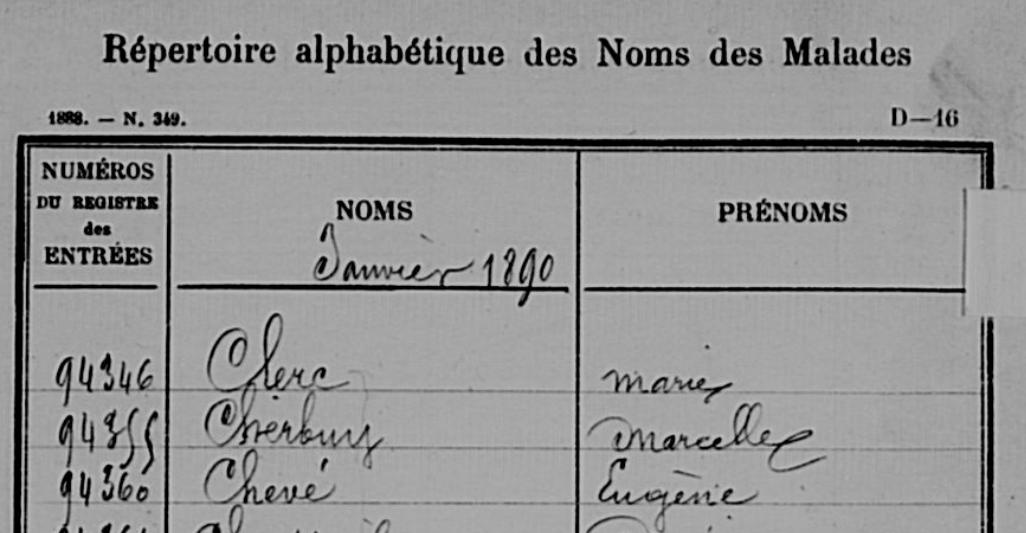 Répertoire alphabétique des Noms des Malades
1888. — N. 349.
D—16
NUMÉROS
DU REGISTRE
des
ENTRÉES
NOMS
PRÉNOMS
Janvier 1890
94346 Clerc Marie
94355 Marcelle
94360 Chevé Eugènie